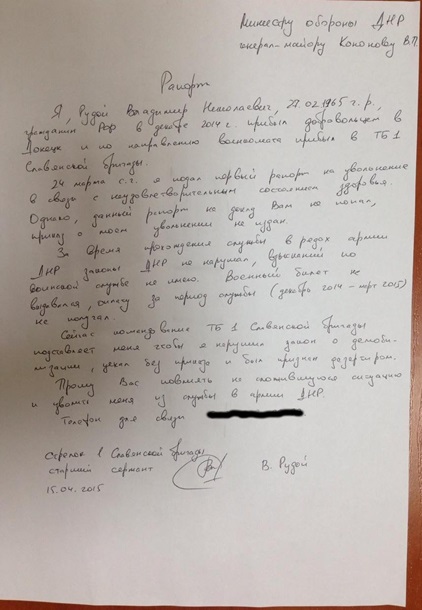 Министру обороны ДНР
генерал-майору Кононову В.П.
Рапорт
Я, Рудой Владимир Николаевич, 27.02.1965 г.р.,
гражданин РФ в декабре 2014 г. прибыл добровольцем в
Донецк и по направлению военкомата прибыл в ТБ 1
Славянской бригады.
24 марта с.г. я подал первый рапорт на увольнение
в связи с неудовлетворительным состоянием здоровья.
Однако, данный рапорт на доклад Вам не попал,
приказ о моем увольнении не издан.
За время прохождения службы в рядах армии
ДНР законы ДНР не нарушал, взысканий по
воинской службе не имею. Военный билет не
выдавался, оплату за период службы (декабрь 2014 - март 2015)
не получал.
Сейчас командование ТБ 1 Славянской бригады
подставляет меня чтобы я нарушил закон о демоби-
лизации, уехал без приказа и был признан дезертиром.
Прошу Вас повлиять на сложившуюся ситуацию
и уволить меня из службы в армии ДНР.
Телефон для связи
Стрелок 1 Славянской бригады
старший сержант В. Рудой
15.04.2015